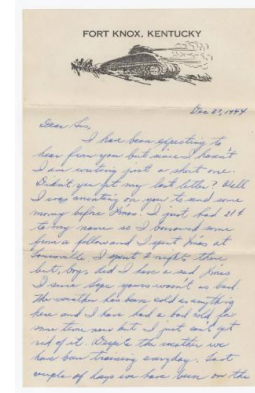 FORT KNOX, KENTUCKY
Dec 27, 1944
Dear Sis,
I have been expecting to
hear from you but since I haven't
I am writing just a short one.
Didn't you get my last letter? Well
I was counting on you to send some
money before Xmas. I just had 11¢
to my name so I borrowed some
from a fellow and I spent Xmas at
Louisville. I spent 2 nights there
but, boy, did I have a sad Xmas
I sure hope yours wasn't as bad
The weather has been cold as anything
here and I have had a bad cold for
some time now but I just can't get
rid of it. Despite the weather we
have been training everyday. Last
couple of days we have been on the